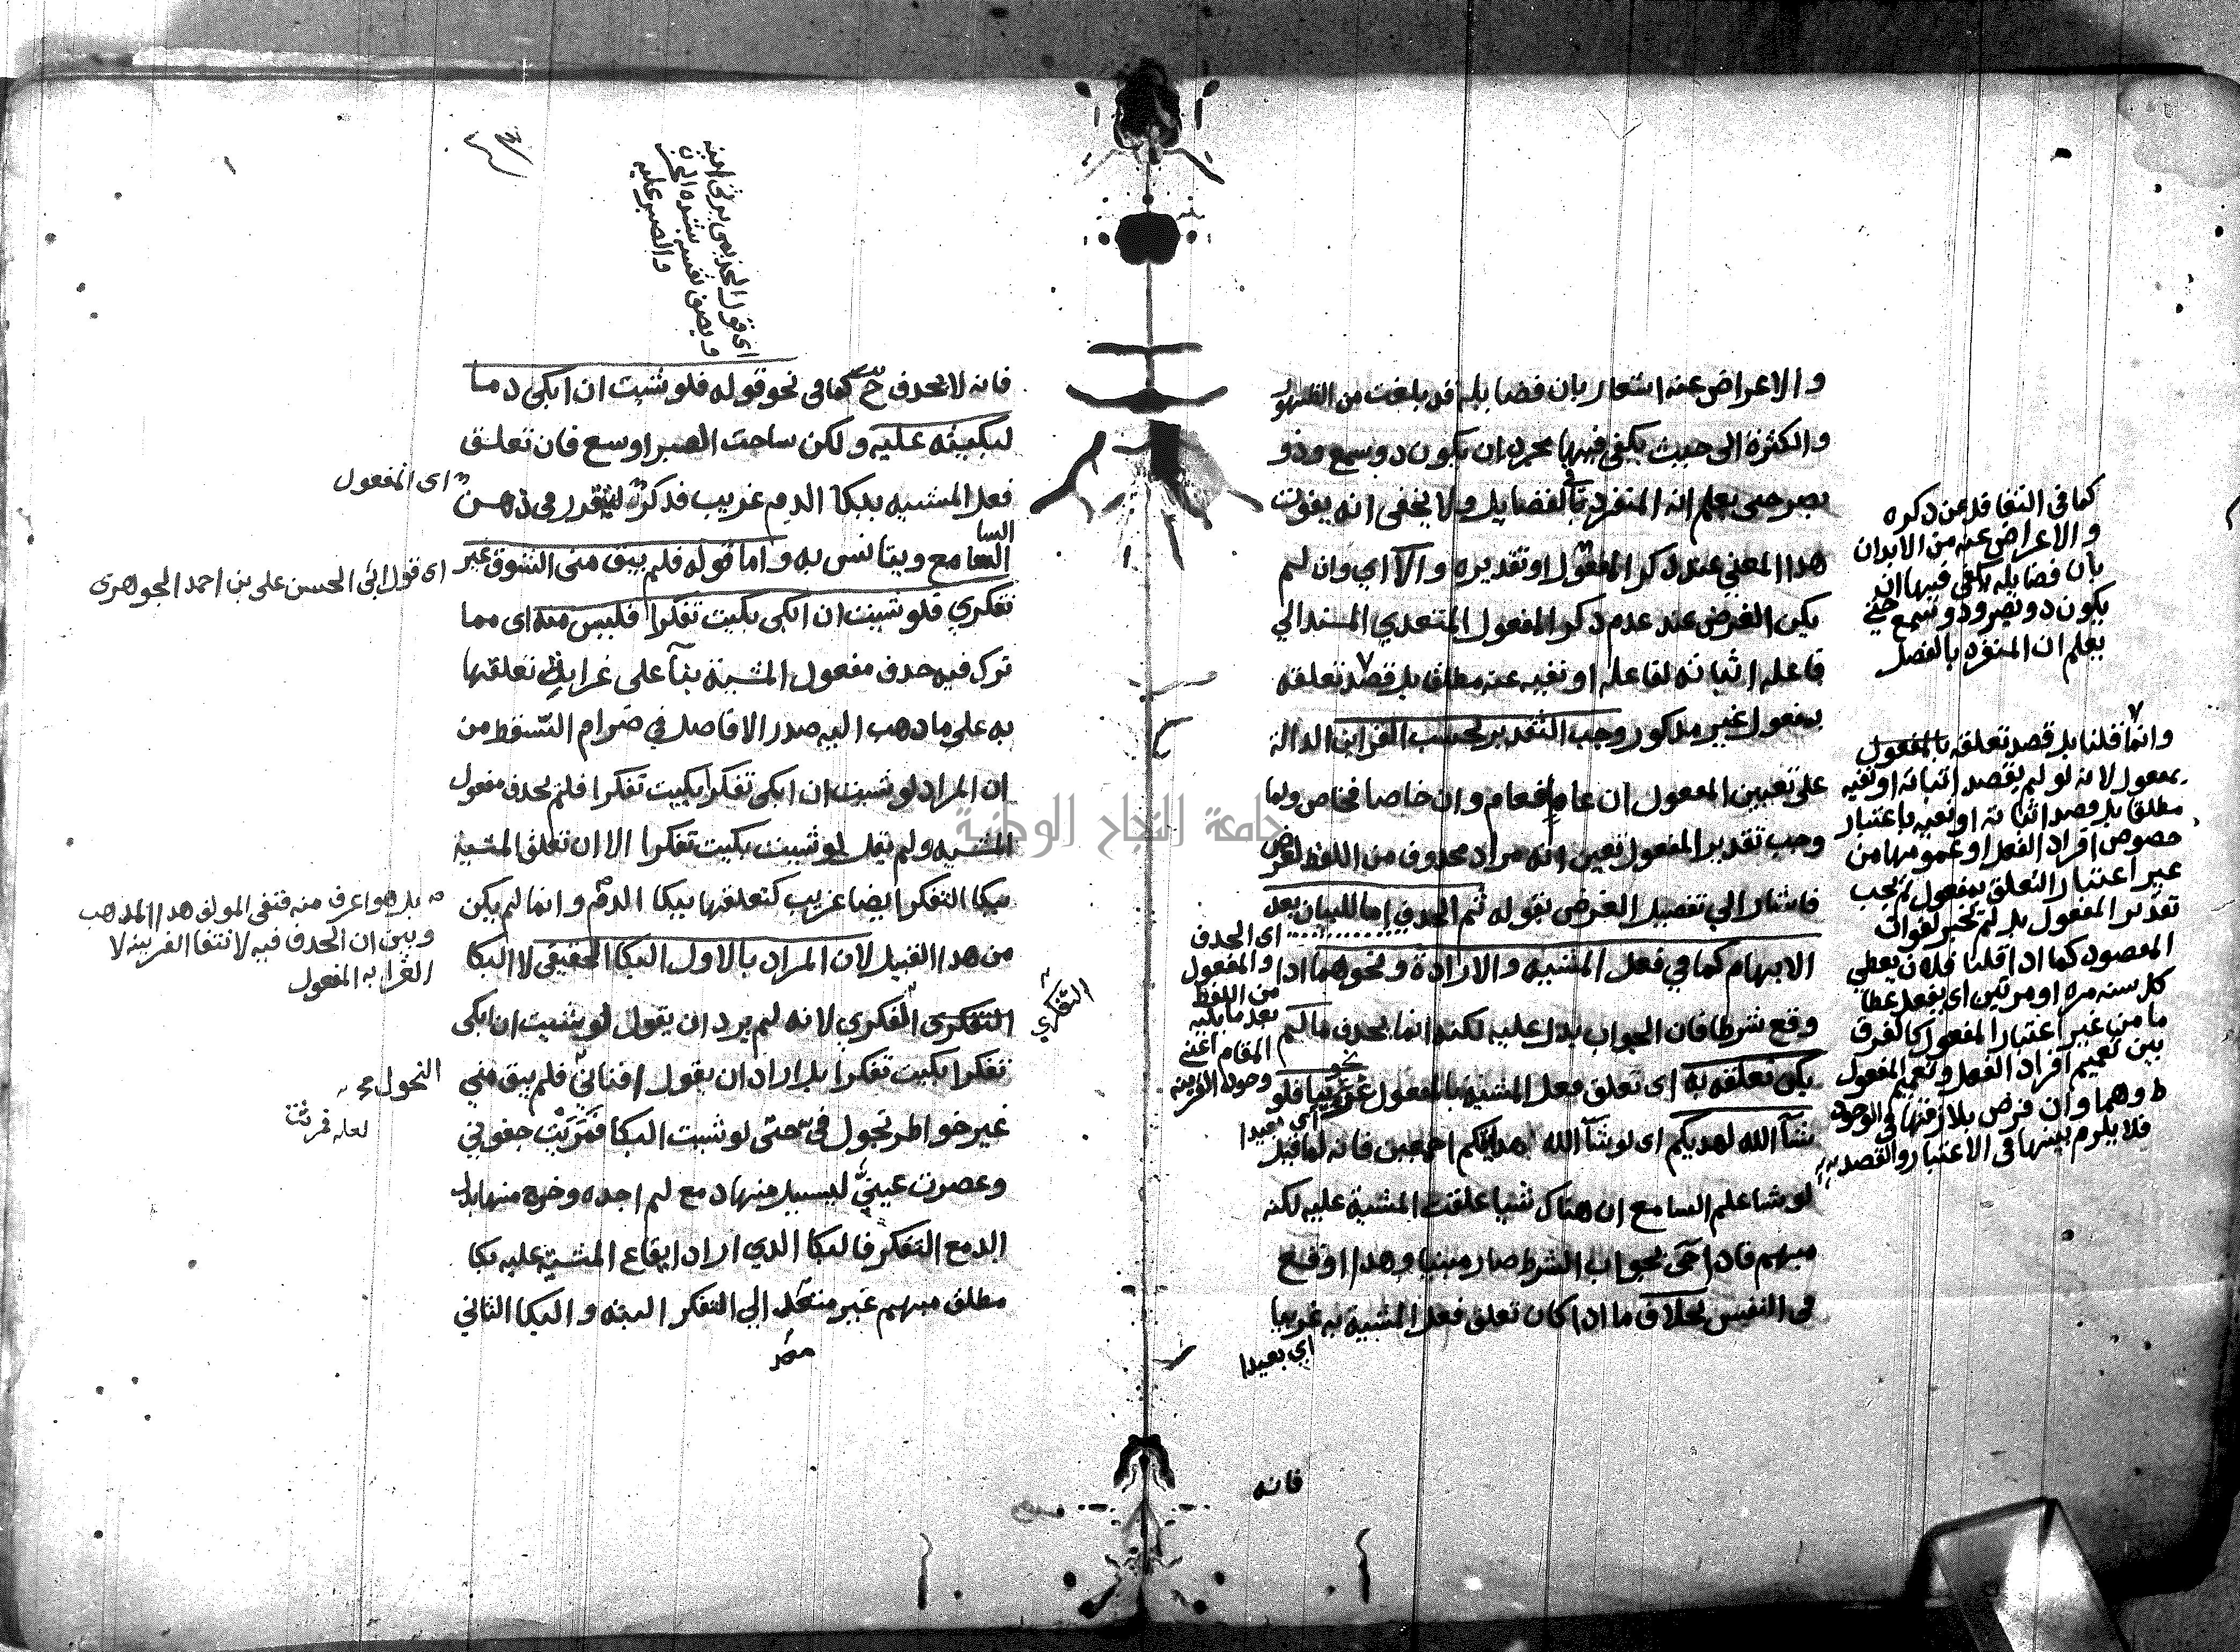 والاعراض عنه اشعار بان فضايله قد بلغت من الظهور
والكثرة الى حيث يكفى فيها مجرد ان يكون ذو سمع وذو
بصر حتى يعلم انه المتفرد بالفضايل ولا يخفى انه يفوت
هذا المعني عند ذكر المفعول او تقديره والا اي وان لم
يكن الغرض عند عدم ذكر المفعول المتعدي المسند الي
فاعله اثباته لفاعله او نفيه عنه مطلقا بل قصد تعلقه
بمفعول غير مذكور وجب التقدير بحسب القراين الدالة
على تعيين المفعول ان عام فعام وان خاصا فخاص ولما
وجب تقدير المفعول تعين انه مراد محذوف من اللفظ لغرض
فاشار الي تفصيل الغرض بقوله ثم الحذف اما للبيان بعد
الابهام كما في فعل المشية والارادة ونحوهما اذا
وقع شرطا فان الجواب يدل عليه لكنه انما يحذف ما لم
يكن تعلقه به اى تعلق فعل المشية بالمفعول غريبا نحو فلو
شآ الله لهديكم اى لو شآ الله هدايتكم اجمعين فانه لما قيل
لو شا علم السامع ان هناك شيا علقت المشية عليه لكنه
مبهم فاذا جى بجواب الشرط صار مبينا وهذا اوقع
فى النفس بخلاف ما اذا كان تعلق فعل المشية به غريبا
اي بعيدا
فانه
كما فى التغافل عن ذكره
والاعراض عنه من الايذان
بان فضايله يكفى فيها ان
يكون ذو بصر وذو سمع حتى
يعلم ان المنفرد بالفضل
وانما قلنا بل قصد تعلقه بالمفعول
بمفعول لانه لو لم يقصد اثباته او نفيه
مطلقا بل قصد اثباته او نفيه باعتبار
خصوص افراد الفعل او عمومها من
غير اعتبار التعلق بمفعول لم يجب
تقدير المفعول بل لم يجز لفوات
المقصود كما اذا قلنا فلان يعطي
كل سنه مره او مرتين اى يفعل عطا
ما من غير اعتبار المفعول كالفرق
بين تعميم افراد الفعل وتعميم المفعول
وهما وان فرض تلازمهما في الوجود
فلا يلزم بينهما فى الاعتبار والقصد
اى الحذف
والمفعول
من اللفظ
بعد ما يليه
المقام اعني
وجود القرينه
اى بعيدا
اى قول الخزيمى يرثى ابنه
ويصف نفسه بشدة الحزن
والصبر عليه
فانه لا يحذف ح كما فى نحو قوله فلو شئت ان ابكى دما
لبكيته عليه ولكن ساحت الصبر اوسع فان تعلق
فعل المشيه ببكا الدم غريب فذكره ليتقرر فى ذهن
السامع ويتانس به واما قوله فلم يبق منى الشوق غير
تفكري فلو شئت ان ابكى بكيت تفكرا فليس منه اى مما
ترك فيه حذف مفعول المشية بنآ على غرابة تعلقها
به على ما ذهب اليه صدر الافاضل في ضرام السقط من
ان المراد لو شئت ان ابكى تفكرا بكيت تفكرا فلم يحذف مفعول
المشيه ولم يقل لو شئت بكيت تفكرا الا ان تعلق المشية
ببكا التفكر ايضا غريب كتعلقها ببكا الدم وانما لم يكن
من هذا القبيل لان المراد بالاول البكا الحقيقى لا البكا
التفكرى الفكري لانه لم يرد ان يقول لو شئت ان ابكى
تفكرا بكيت تفكرا بل اراد ان يقول افنانى فلم يبق مني
غير خواطر تجول فى حتى لو شئت البكا فمريت جفوني
وعصرت عيني ليسيل منها دمع لم اجده وخرج منها بدل
الدمع التفكر فالبكا الذي اراد ايقاع المشية عليه بكا
مطلق مبهم غير متعد الى التفكر البته والبكا الثاني
اى المفعول
اى قول ابى الحسن على بن احمد الجوهرى
بل هو اعرف منه فنفى المولف هذا المذهب
وبين ان الحذف فيه لانتفا القرينه لا
لغرابه المفعول
التفكري
النحول
لعله فمريت
جامعة النجاح الوطنية